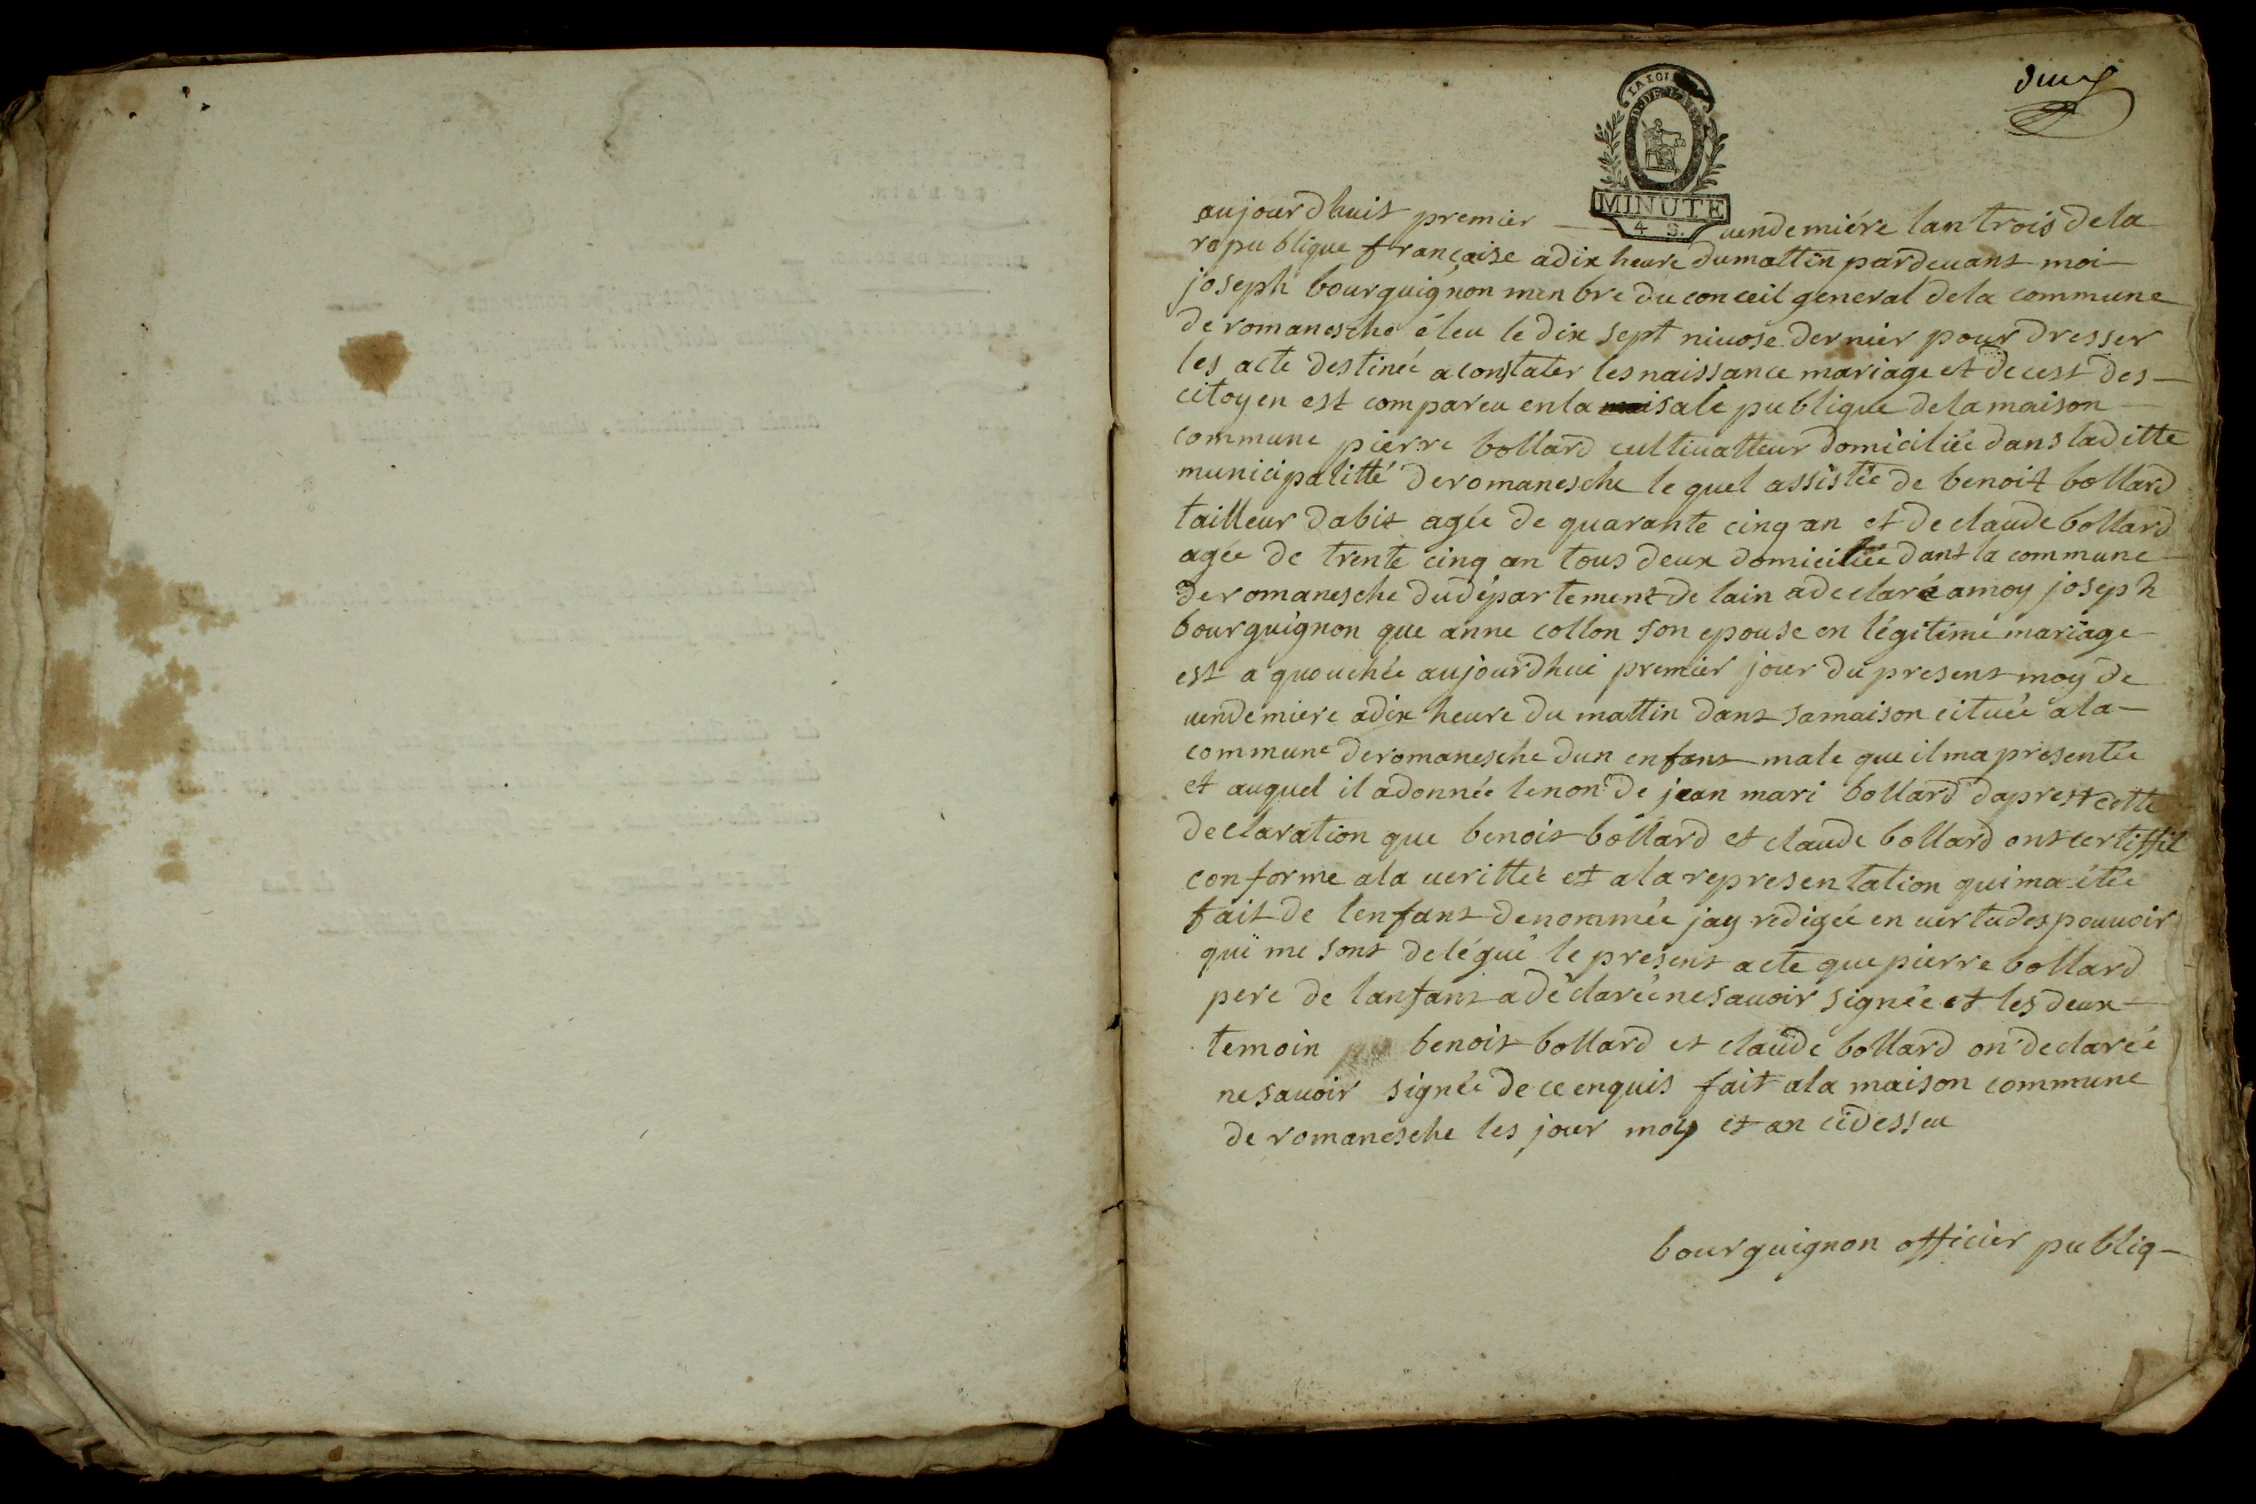 LA LOI
MINUTE
4 S.
aujourdhuit premier — uendemiére lan trois dela
republique française adix heure dumattin pardeuant moi
joseph bourguignon menbre du conceil general dela commune
de romanesche éleu le dix sept niuose dernier pour dresser
les acte destinée aconstater les naissance mariage et decest des
citoyen est compareu enla sale publique dela maison
commune pierre bollard cultiuatteur domiciliée dans laditte
municipalitté deromanesche le quel assistée de benoit bollard
tailleur dabit agée de quarante cinq an et declaude bollard
agée de trente cinq an tous deux domiciliée dans la commune
deromanesche dudépartement de lain adeclaré amoy joseph
bourguignon que anne collon son epouse en légitime mariage
est a quouchée aujourdhui premier jour du present moy de
uendemiere adix heure du mattin dans samaison cituée ala
commune deromanesche dun enfant male que ilma presentée
et auquel il adonnée lenon de jean mari bollard daprest cette
declaration que benoit bollard et claude bollard ont certiffié
conforme ala ueritteé et ala representation quima étée
fait de lenfant denommée jay redigée en uertudes pouuoir
qui me sont delégué le present acte que pierre bollard
pere de lanfant adéclaréé nesauoir signée et les deux
temoin benoit bollard et claude bollard on declaréé
nesauoir signée de ce enquis fait ala maison commune
de romanesche les jour moy et an cidesseu
bourguignon officier publiq